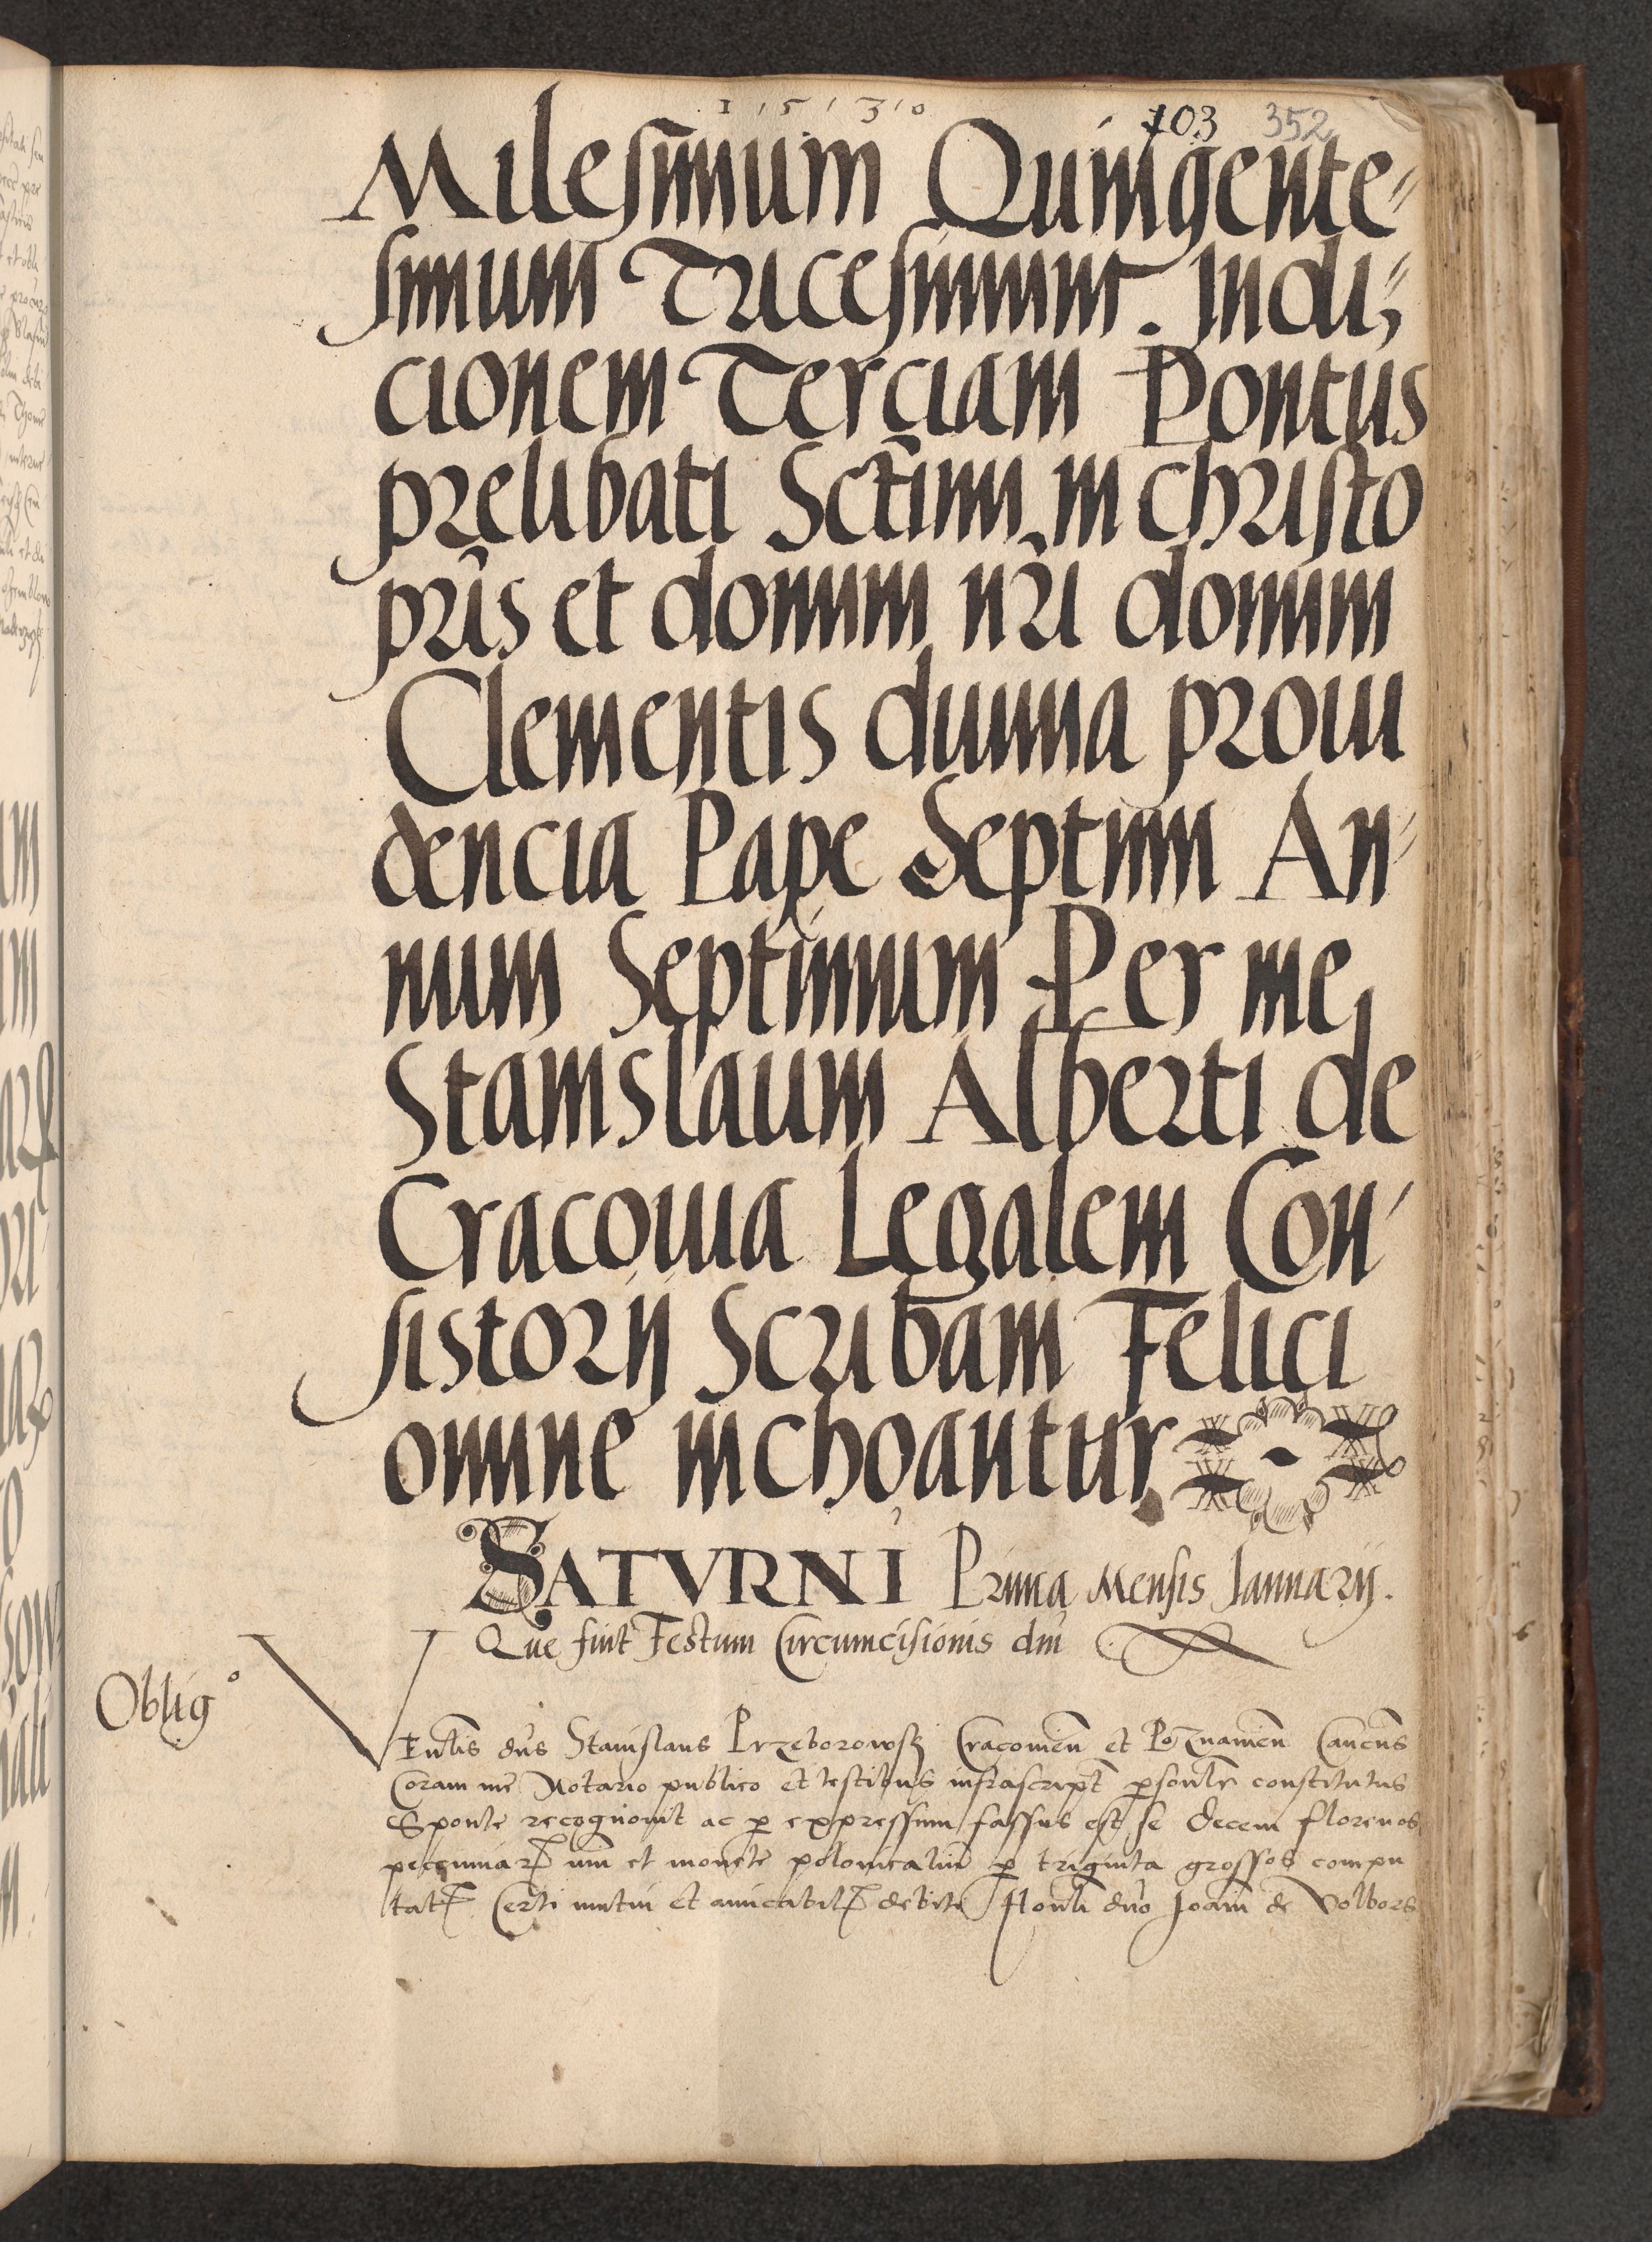 1 5 3 0
103 352
Milesimum Quingente-
simum Tricesimum. Indi-
cionem Terciam Pontus
prelibati Sctimi in christo
pris et domini nri domini
Clementis diuina proui
dencia Pape Septimi An-
num Septimum Per me
Stanislaum Alberti de
Cracouia Legalem Con-
sistorij Scribam Felici
omine inchoantur
SATVRNI Prima Mensis Januarij.
Que fuit Festum Circumcisionis dni
Oblig°
VEnlis dns Stanislaus Przeborowsky Cracouien et Poznanien Cancus
Coram me Notario publico et testibus infrascript psonlr constitutus
Sponte recognouit ac p expressum fassus est se decem florenos
peccuniar et monete polonicalium p triginta grossos compu
tat Certi mutui et amicabil debite Honli dno Joanni de Volbors